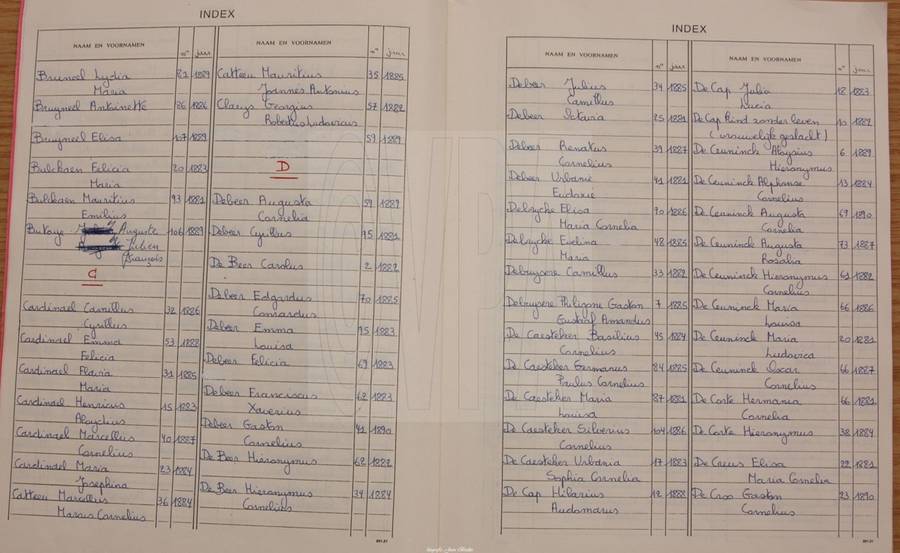 INDEX
NAAM EN VOORNAMEN n° jaar
Bruneel Lydia 21 1889
Maria
Bruyneel Antoinette 86 1886
Bruyneel Elisa 107 1889
Bulckaen Felicia 20 1883
Maria
Bulckaen Mauritius 93 1881
Emilius
Butaye Auguste 106 1889
Julien
François
C
Cardinael Camillus 32 1886
Cyrillus
Cardinael Emma 53 1882
Felicia
Cardinael Flavia 31 1885
Maria
Cardinael Henricus 15 1883
Aloysius
Cardinael Marcellus 40 1887
Cornelius
Cardinael Maria 23 1884
Josephina
Catteeu Marcellus 36 1884
Marais Cornelius
NAAM EN VOORNAMEN n° jaar
Catteeu Mauritius 35 1885
Joannes Antonius
Claeys Georgius 57 1882
Robertus Ludovicus
59 1889
D
Debeer Augusta 59 1889
Cornelia
Debeer Cyrillus 95 1881
De Beer Carolus 2 1882
Debeer Edgardus 70 1885
Conradus
Debeer Emma 95 1883
Louisa
Debeer Felicia 69 1883
Debeer Franciscus 62 1883
Xaverius
Debeer Gaston 41 1890
Cornelius
De Beer Hieronymus 62 1882
De Beer Hieronymus 34 1884
Cornelius
891.21
INDEX
NAAM EN VOORNAMEN n° jaar
Debeer Julius 34 1885
Camillus
Debeer Octavia 25 1881
Debeer Renatus 39 1887
Cornelius
Debeer Urbanie 41 1881
Eudoxie
Debruyche Elisa 90 1886
Maria Cornelia
Debruyche Evelina 48 1885
Maria
Debruysere Camillus 33 1882
Debruysere Philigone Gaston 7 1885
Gustaf Amandus
De Caesteker Basilius 45 1884
Cornelius
De Caesteker Germanus 84 1885
Paulus Cornelius
De Caesteker Maria 87 1881
Louisa
De Caesteker Silverius 104 1886
Cornelius
De Caesteker Urbania 17 1883
Sophia Cornelia
De Cap Hilarius 12 1888
Audomarus
NAAM EN VOORNAMEN n° jaar
De Cap Julia 18 1883
Lucia
De Cap Kind zonder leven 10 1882
(vrouwelijk geslacht)
De Ceuninck Aloysius 6 1889
Hieronymus
De Ceuninck Alphonse 13 1884
Cornelius
De Ceuninck Augusta 67 1890
Cornelia
De Ceuninck Augusta 73 1887
Rosalia
De Ceuninck Hieronymus 61 1882
Cornelius
De Ceuninck Maria 66 1886
Louisa
De Ceuninck Maria 20 1881
Ludovica
De Ceuninck Oscar 66 1887
Cornelius
De Corte Hermania 66 1881
Cornelia
De Corte Hieronymus 38 1884
De Creus Elisa 22 1881
Maria Cornelia
De Croo Gaston 23 1890
Cornelius
891.21